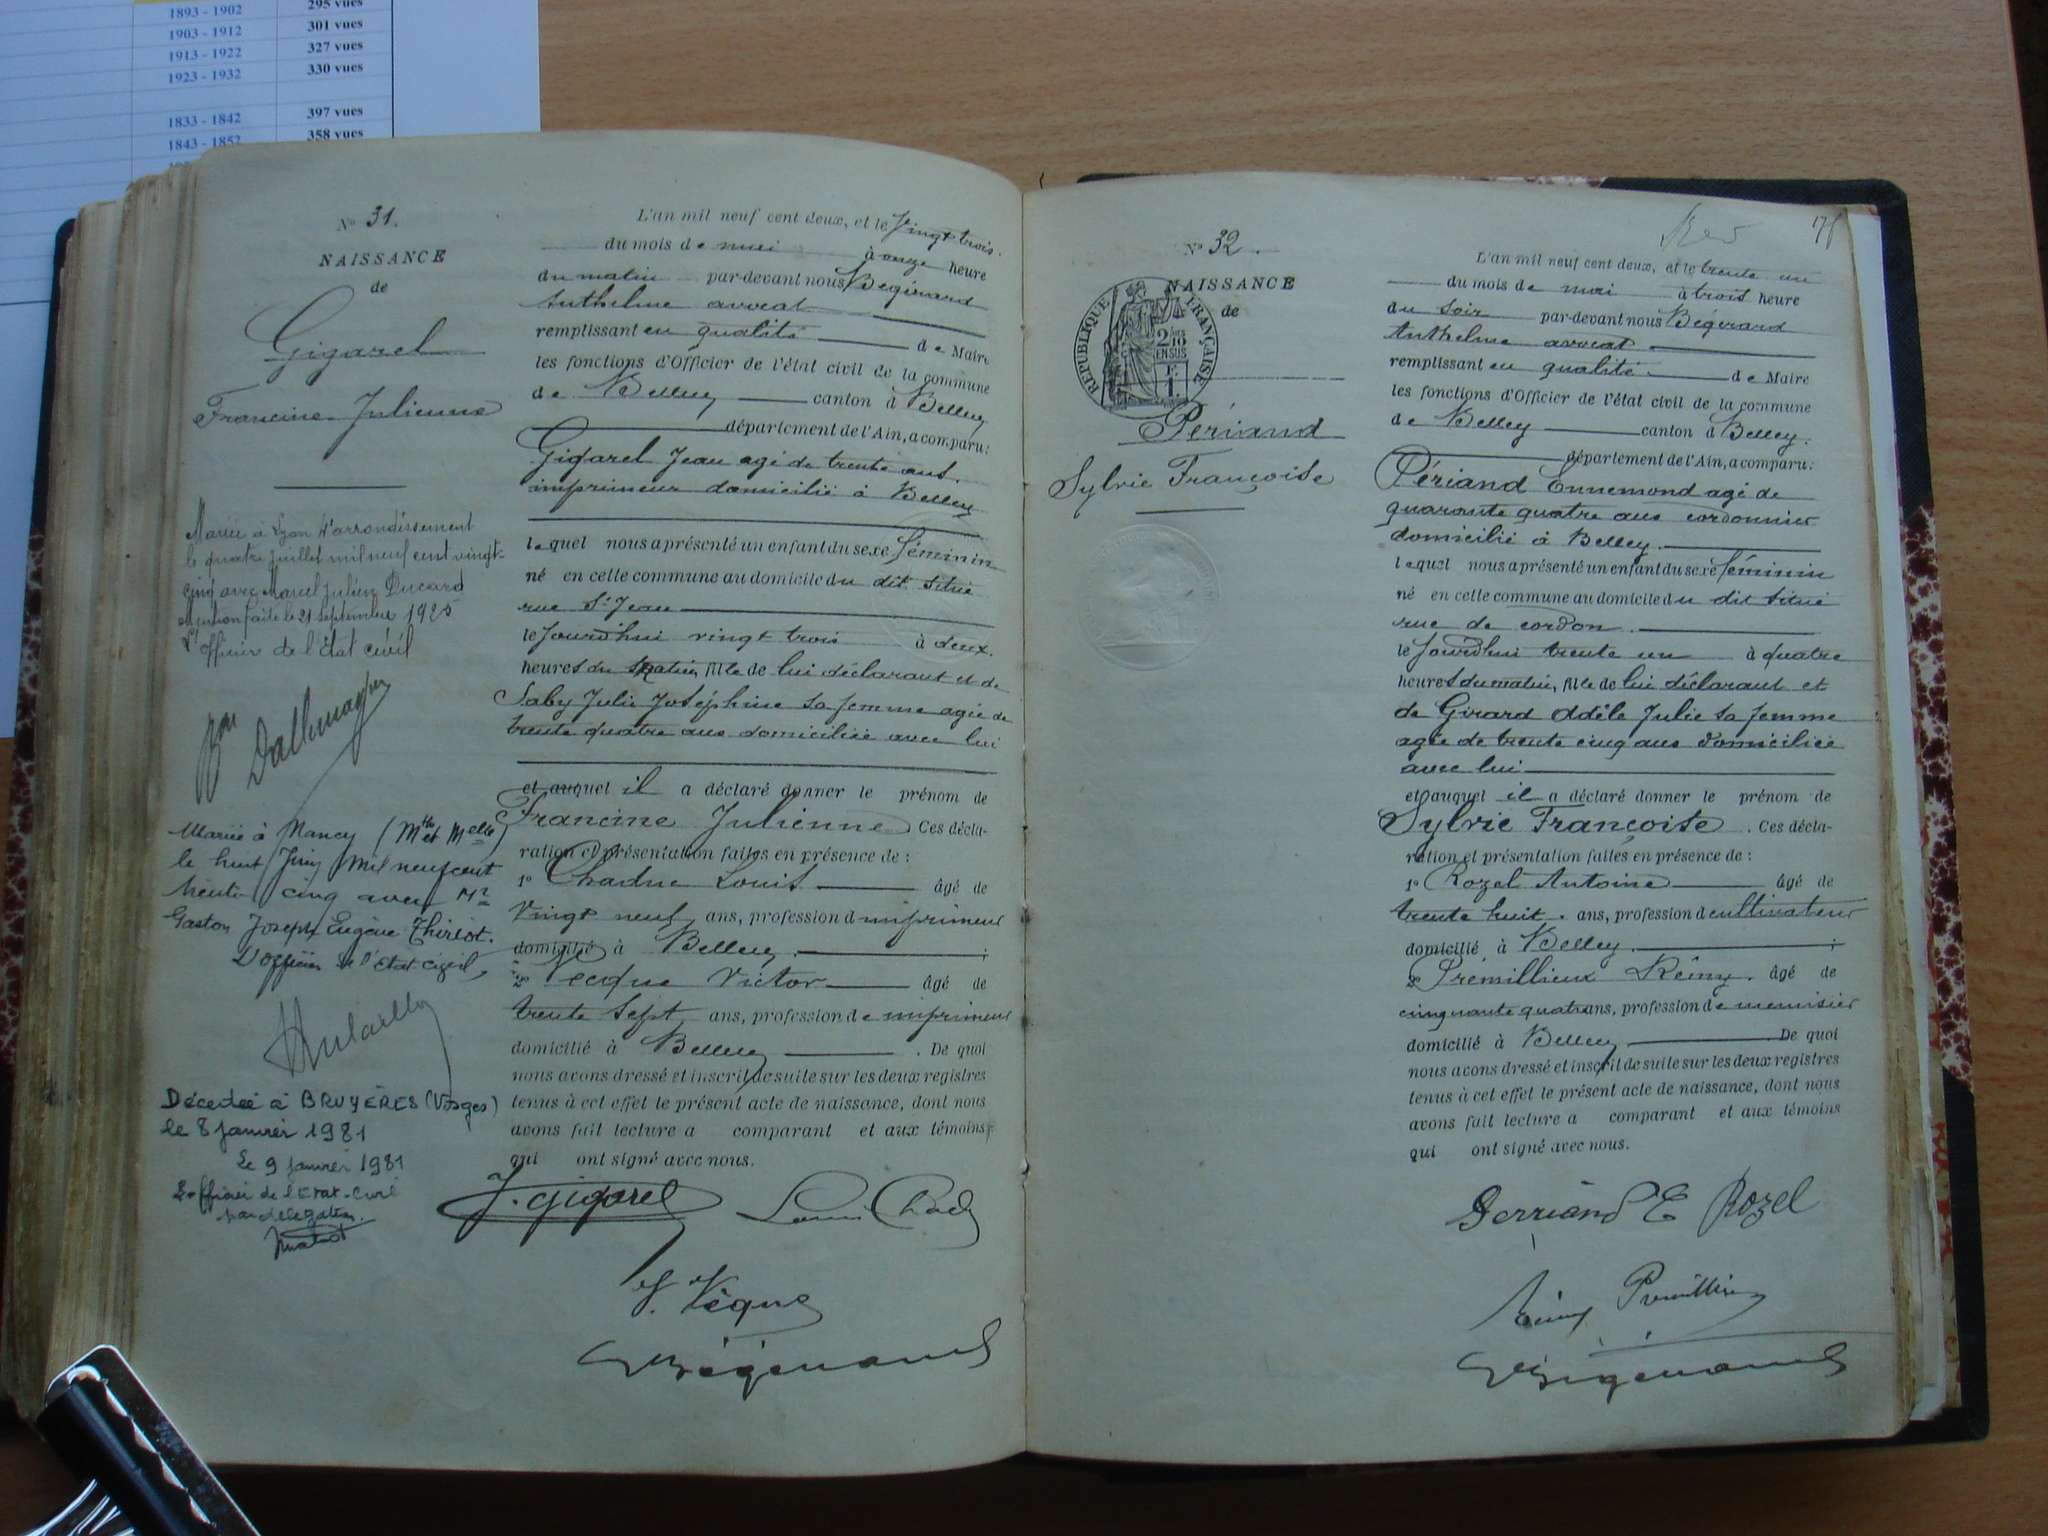 1893 - 1902 295 vues
1903 - 1912 301 vues
1913 - 1922 327 vues
1923 - 1932 330 vues
1833 - 1842 397 vues
1843 - 1852 358 vues
N° 31.
NAISSANCE
de
Gigarel
Francine Julienne
Mariée à Lyon 4e arrondissement
le quatre juillet mil neuf cent vingt-
cinq avec Marcel Julien Ducard
mention faite le 21 septembre 1925
L'officier de l'Etat civil
Mariée à Nancy (Mthe et Melle)
le huit Juin mil neuf cent
trente cinq avec Mr
Gaston Joseph Eugène Thiriot.
L'officier de l'Etat civil
Décédée à BRUYÈRES (Vosges)
le 8 Janvier 1981
Le 9 janvier 1981
L'officier de l'Etat-Civil
par délégation.
L'an mil neuf cent deux, et le vingt trois
du mois de mai à onze heure
du matin par-devant nous Bégérard
Anthelme avocat
remplissant en qualité de Maire
les fonctions d'Officier de l'état civil de la commune
de Belley canton d Belley
département de l'Ain, a comparu:
Gigarel Jean agé de trente ans.
imprimeur domicilié à Belley
lequel nous a présenté un enfant du sexe féminin
né en cette commune au domicile du dit situé
rue St Jean
le Jourd'hui vingt trois à deux
heures du matin, fille de lui déclarant et de
Saby Julie Joséphine sa femme agée de
trente quatre ans domiciliée avec lui
et auquel il a déclaré donner le prénom de
Francine Julienne Ces décla-
ration et présentation faites en présence de :
1° Chadue Louis âgé de
vingt neuf ans, profession d imprimeur
domicilié à Belley ;
2° Vecque Victor âgé de
trente sept ans, profession de imprimeur
domicilié à Belley . De quoi
nous avons dressé et inscrit de suite sur les deux registres
tenus à cet effet le présent acte de naissance, dont nous
avons fait lecture a comparant et aux témoins
qui ont signé avec nous.
J. Gigarel Louis Chad
V. Vèque
Bégérard
Rev
N° 32.
NAISSANCE
de
RÉPUBLIQUE FRANÇAISE
2/10 EN SUS
Périand
Sylvie Françoise
L'an mil neuf cent deux, et le trente un
du mois de mai à trois heure
du soir par-devant nous Bégérard
Anthelme avocat
remplissant en qualité de Maire
les fonctions d'Officier de l'état civil de la commune
de Belley canton d Belley.
département de l'Ain, a comparu:
Périand Ennemond agé de
quarante quatre ans cordonnier
domicilié à Belley.
lequel nous a présenté un enfant du sexe féminin
né en cette commune au domicile du dit situé
rue de cordon.
le Jourd'hui trente un à quatre
heures du matin, fille de lui déclarant et
de Girard Adèle Julie sa femme
agée de trente cinq ans domiciliée
avec lui
et auquel il a déclaré donner le prénom de
Sylvie Françoise. Ces décla-
ration et présentation faites en présence de :
1° Rozel Antoine âgé de
trente huit. ans, profession d cultivateur
domicilié à Belley ;
2° Prémillieux Rémy. âgé de
cinquante quatre ans, profession de menuisier
domicilié à Belley De quoi
nous avons dressé et inscrit de suite sur les deux registres
tenus à cet effet le présent acte de naissance, dont nous
avons fait lecture a comparant et aux témoins
qui ont signé avec nous.
Perriand E Rozel
Rémy Prémillieux
Bégérard